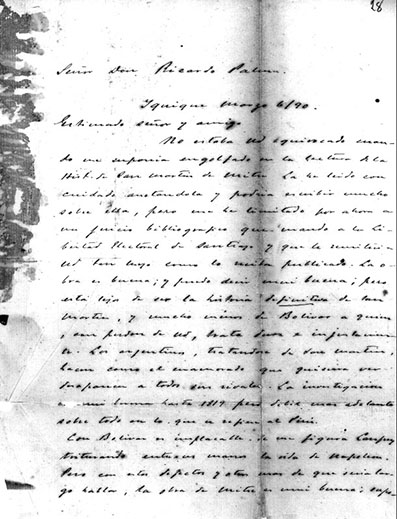 28
Señor Don Ricardo Palma.
Iquique Marzo 6/90.
Estimado señor y amigo
No estaba Ud equivocado cuan-
do me suponia engolfado en la lectura de la
Hist. de San Martin de Mitre. La he leido con
cuidado anotandola y podria escribir mucho
sobre ella, pero me he limitado por ahora a
un juicio bibliografico que mando a la Li-
bertad Electoral de Santiago y que le remitiré a
Ud tan luego como lo publicado. La o-
bra es buena; y puedo decir mui buena; pero
está lejos de ser la historia definitiva de San
Martin, y mucho menos de Bolivar a quien,
con perdon de Ud, trata dura e injustamen-
te. Los argentinos, tratandose de San Martin,
hacen como el enamorado que quisiera ver
desaparecer a todos sus rivales. La investigacion
es mui buena hasta 1819 pero debil mas adelante
sobre todo en lo que se refiere al Perú.
Con Bolivar es implacable. Se me figura Lanfrey
triturando entre sus manos la vida de Napoleon.
Pero con estos defectos y otros mas de que seria lar-
go hablar, la obra de Mitre es mui buena;